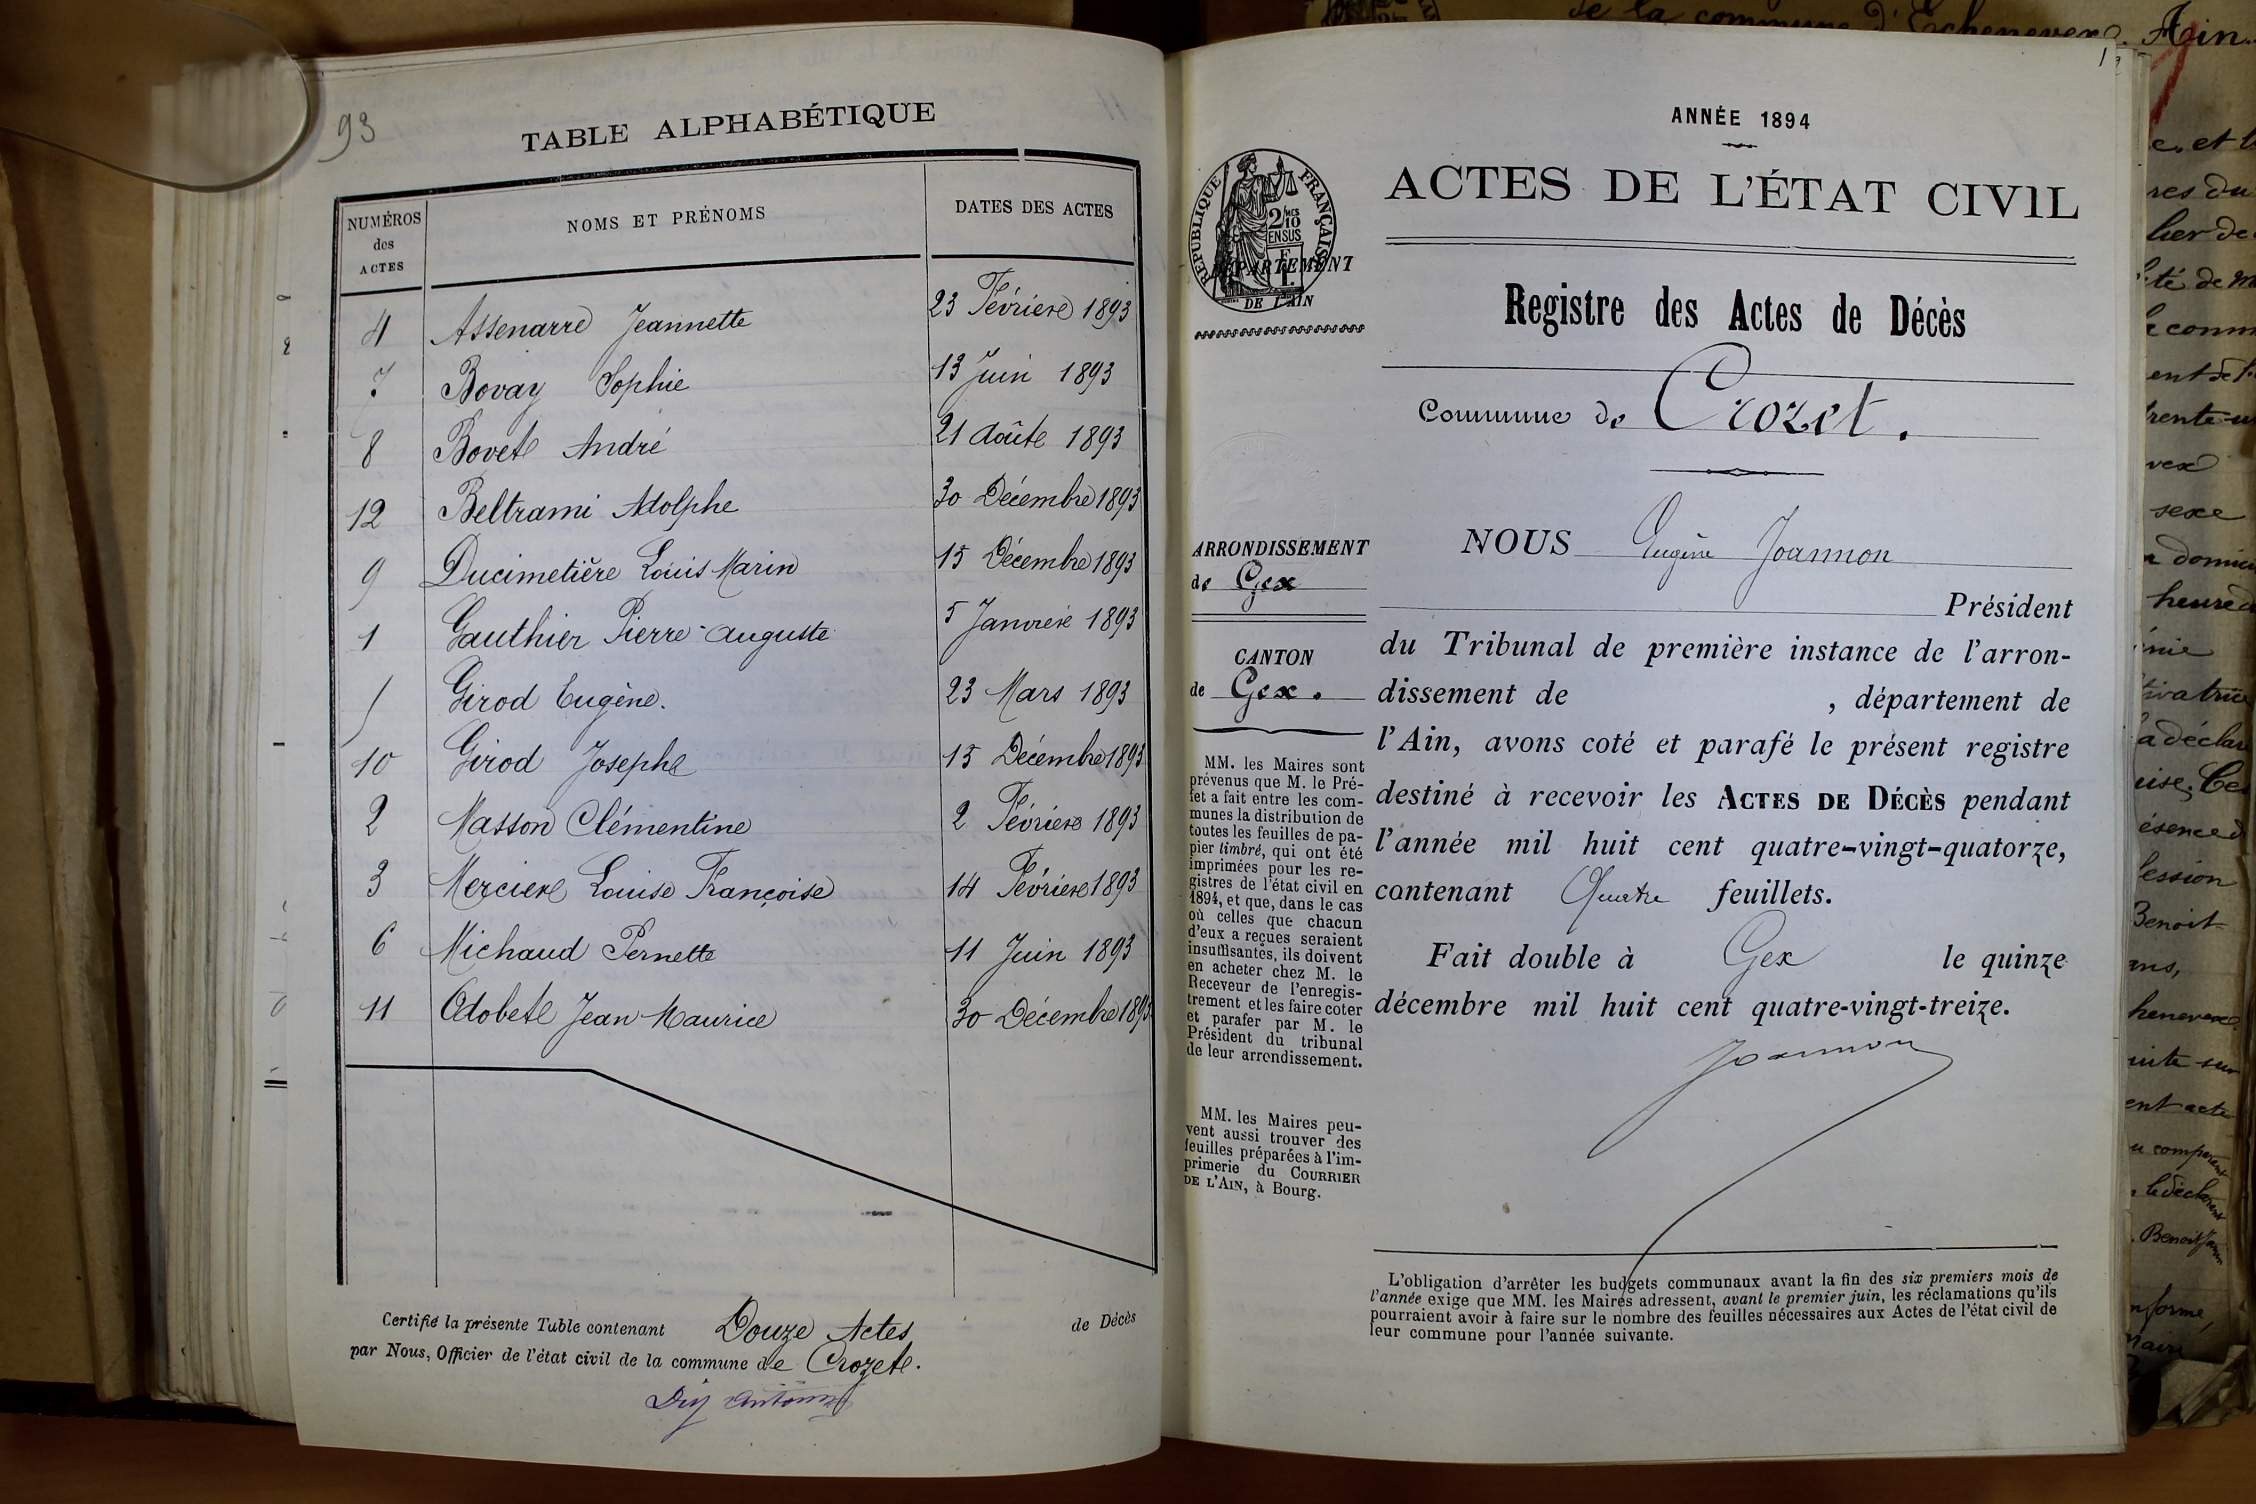 93
TABLE ALPHABÉTIQUE
NUMÉROS des ACTES NOMS ET PRÉNOMS DATES DES ACTES
4 Assenarre Jeannette 23 Février 1893
7 Bovay Sophie 13 Juin 1893
8 Bovet André 21 Août 1893
12 Beltrami Adolphe 30 Décembre 1893
9 Ducimetière Louis Marin 15 Décembre 1893
1 Gauthier Pierre-Auguste 5 Janvier 1893
5 Girod Eugène. 23 Mars 1893
10 Girod Josephe 15 Décembre 1893
2 Masson Clémentine 2 Février 1893
3 Mercier Louise Françoise 14 Février 1893
6 Michaud Pernette 11 Juin 1893
11 Odobet Jean Maurice 30 Décembre 1893
Certifié la présente Table contenant Douze Actes de Décès
par Nous, Officier de l'état civil de la commune de Crozet.
ANNÉE 1894
ACTES DE L'ÉTAT CIVIL
RÉPUBLIQUE FRANÇAISE
2/10
EN SUS
DÉPARTEMENT
DE L'AIN
Registre des Actes de Décès
Commune de Crozet.
ARRONDISSEMENT
de Gex
CANTON
de Gex.
MM. les Maires sont
prévenus que M. le Pré-
fet a fait entre les com-
munes la distribution de
toutes les feuilles de pa-
pier timbré, qui ont été
imprimées pour les re-
gistres de l'état civil en
1894, et que, dans le cas
où celles que chacun
d'eux a reçues seraient
insuffisantes, ils doivent
en acheter chez M. le
Receveur de l'enregis-
trement et les faire coter
et parafer par M. le
Président du tribunal
de leur arrondissement.
MM. les Maires peu-
vent aussi trouver des
feuilles préparées à l'im-
primerie du COURRIER
DE L'AIN, à Bourg.
NOUS Eugène Joannon
Président
du Tribunal de première instance de l'arron-
dissement de , département de
l'Ain, avons coté et parafé le présent registre
destiné à recevoir les ACTES DE DÉCÈS pendant
l'année mil huit cent quatre-vingt-quatorze,
contenant Quatre feuillets.
Fait double à Gex le quinze
décembre mil huit cent quatre-vingt-treize.
Joannon
L'obligation d'arrêter les budgets communaux avant la fin des six premiers mois de
l'année exige que MM. les Maires adressent, avant le premier juin, les réclamations qu'ils
pourraient avoir à faire sur le nombre des feuilles nécessaires aux Actes de l'état civil de
leur commune pour l'année suivante.
de la commune d'Echenevex, Ain.